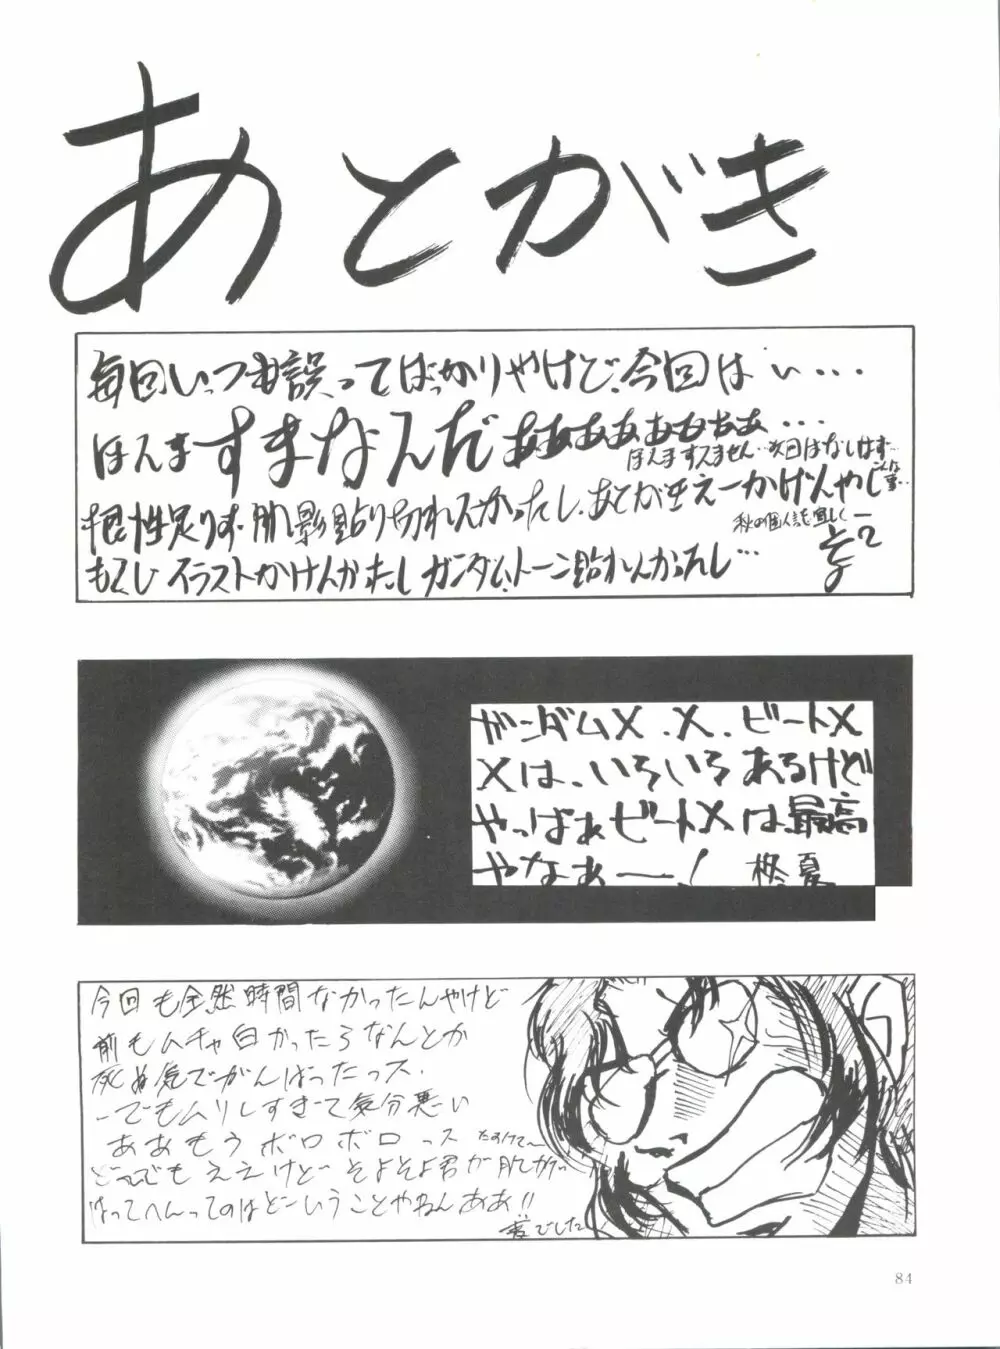 あとがき
毎回いっつも誤ってばっかりやけど、今回はい・・・
ほんますまなんだああああああぁ・・・
ほんますみません・・次回はなしはず・・
こんな事・・
根性足りず、肌影貼り切れんかったし、あとがきえーかげんやし
秋の個人誌も宜しくー
もくじイラストかけんかったし ガンダム、トーン貼れんかったし・・・
ガンダムX、X、ビートX
Xは、いろいろあるけど
やっぱぁビートXは最高
やなぁー!
柊夏
今回も全然時間なかったんやけど
前もムチャ白かったろなんとか
死ぬ気でがんばったっス、
ーでもムリしすぎて気分悪い
ああもうボロボロっス たすけて〜
どーでもええけど そよそよ君が肌カゲ
はってへんってのはどーいうことやねんああ!!
でした
84